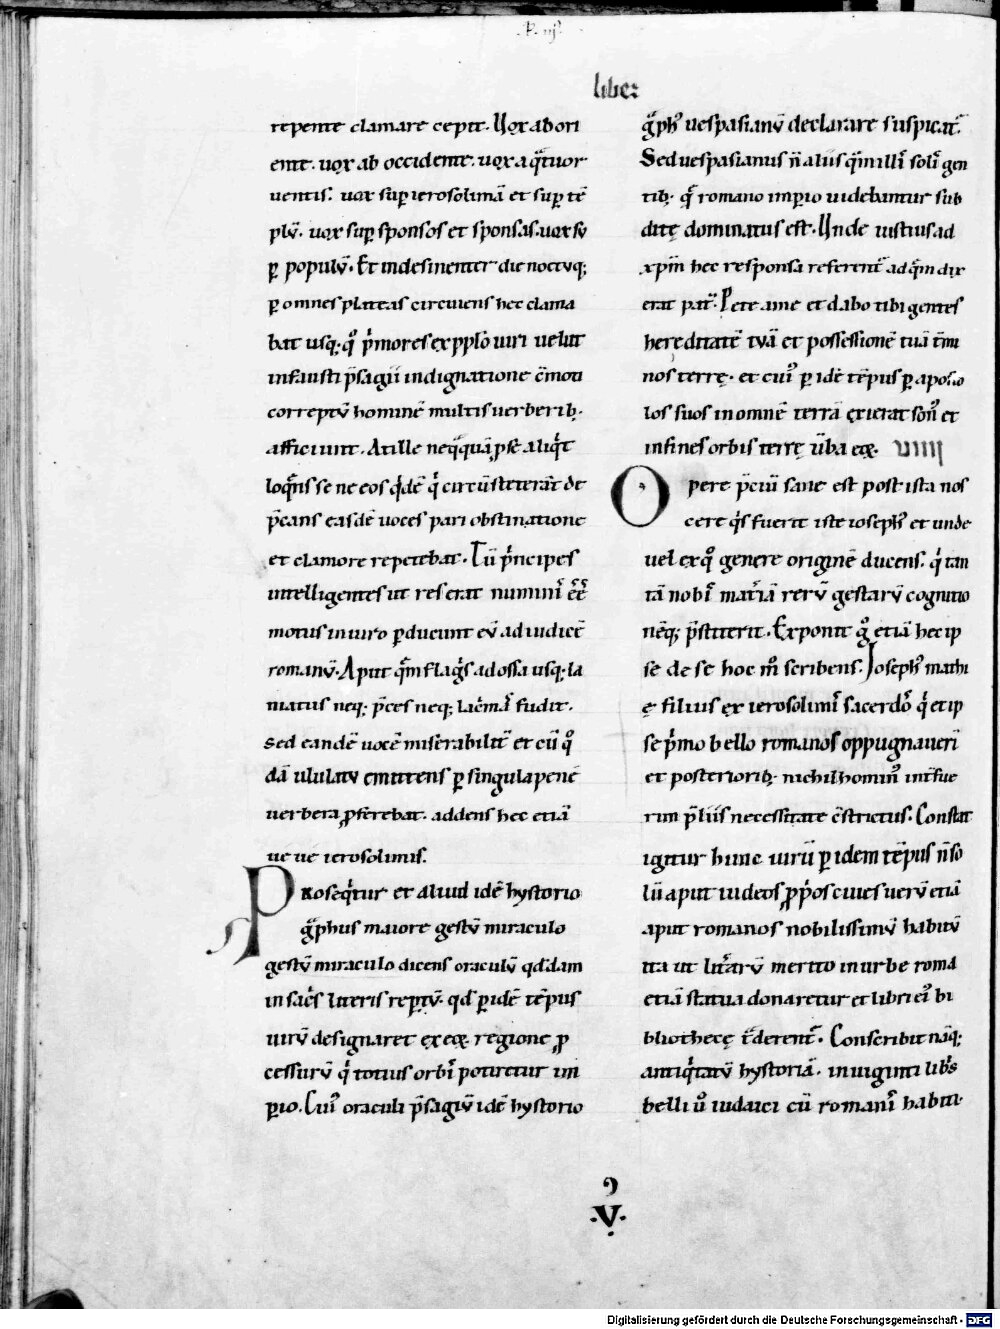 liber
repente clamare cepit. Uox ab ori
ente. uox ab occidente. uox a q̄tuor
uentis. uox sup̄ ierosolimā et sup̄ tē
plū. uox sup̄ sponsos et sponsas. uox sv
ꝑ populū. Et indesinenter die noctuq;
ꝑ omnes plateas circuiens hec clama
bat usq; qͦ p̓mores ex pp̄lo uiri uelut
infausti p̄sagii indignatione c̄moti
correptū hominē multis uerberib;
afficiunt. At ille neq̄quā ꝓ se aliq̓t
loq̄ns se ne eos q̓dē q̓ circūsteterāt de
p̄cans easdē uoces pari obstinatione
et clamore repetebat. Tū p̓ncipes
intelligentes ut res erat numini᷒ ēē
motus in uiro ꝑducunt eū ad iudicē
romanū. Aput q̄m flag̓s ad ossa usq; la
niatus neq; p̄ces neq; lac̓mas fudit.
Sed eandē uocē miserabilit̄ et cū qͦ
dā ululatu emittens ꝑ singula pene
uerbera ꝓferebat. addens hec etiā
ue ue ierosolimis.
Proseq̓tur et aliud idē hystorio
gͣphus maiore gestū miraculo
gestū miraculo dicens oraculū qdd̄am
in sac̓s litteris rep̄tū. qd̄ ꝑ idē tēpus
uirū designaret ex eoꝝ regione ꝓ
cessurū q̓ totius orbis potiretur im
ꝑio. Cui᷒ oraculi p̄sagiū idē hystorio
gͣph᷒ uespasianū declarare suspicat᷑.
Sed uespasianus n̄ aliis q̄m illis solis gen
tib; q̄ romano imꝑio uidebantur sub
ditę dominatus est. Unde iustius ad
xp̄m hec responsa referent᷑ ad q̄m dix
erat pat᷑. Pete a me et dabo tibi gentes
hereditatē tuā et possessionē tuā t̄mi
nos terrę. et cui᷒ ꝑ idē tēpus ꝑ aposto
los suos in omnē terrā exierat son᷒ et
in fines orbis terrę u̅ba eoꝝ. VIIII
Opere p̄ciū sane est post ista nos
cere q̓s fuerit iste ioseph᷒ et unde
uel ex qͦ genere originē ducens. q̓ tan
tā nobis mat̄iā rerū gestarū cognitio
nēq; p̄stiterit. Exponit gͦ etiā hec ip
se de se hoc mͦ scribens. Ioseph᷒ mathi
ę filius ex ierosolimis sacerdos q̓ et ip
se p̓mo bello romanos oppugnaueri
et posteriorib; nichilhomin᷒ int̄fue
rim p̄liis necessitate c̄strictus. Constat
igitur hunc uirū ꝑ idem tēpus n̄ so
lū aput iudeos ꝓp̓os ciues uerū etiā
aput romanos nobilissimū habitū
ita ut litt̄arū merito in urbe roma
etiā statua donaretur et libri ei᷒ bi
bliothecę t̄derent᷑. Conscribit nāq;
antiq̓tatū hystoriā. in uiginti lib̓s
belli u̅ iudaici cū romanis habiti
V